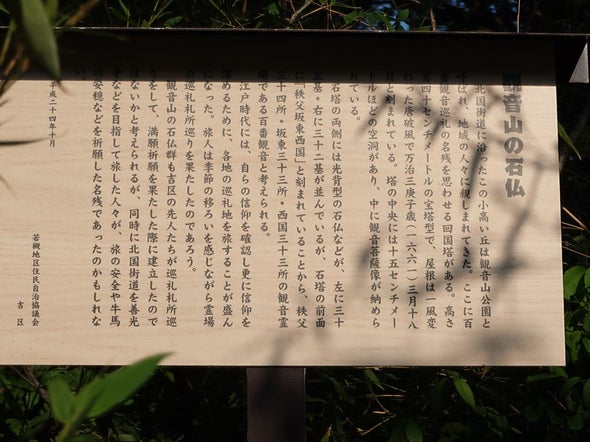 観音山の石仏
北国街道に沿ったこの小高い丘は観音山公園と
ばれ、地域の人々に親しまれてきた。ここに百
観音巡礼の名残を思わせる回国塔がある。高さ
百四十センチメートルの宝塔型で、屋根は一風変
わった唐破風で万治三庚子歳(一六六一)三月十八
日と刻まれている。塔の中央には十五センチメー
トルほどの空洞があり、中に観音菩薩像が納めら
れている。
石塔の両側には光背型の石仏などが、左に三十
五基・右に三十二基が並んでいるが、石塔の前面
に「秩父坂東西国」と刻まれていることから、秩父
三十四所・坂東三十三所・西国三十三所の観音霊
場である百番観音と考えられる。
江戸時代には、自らの信仰を確認し更に信仰を
深めるために、各地の巡礼地を旅することが盛ん
になった。旅人は季節の移ろいを感じながら霊場
の巡礼札所巡りを果たしたのであろう。
観音山の石仏群も吉区の先人たちが巡礼札所巡
りをして、満願祈願を果たした際に建立したので
はないかと考えられるが、同時に北国街道を善光
寺などを目指して旅した人々が、旅の安全や牛馬
の安穏などを祈願した名残であったのかもしれな
い。
平成二十四年十月
若槻地区住民自治協議会
吉区